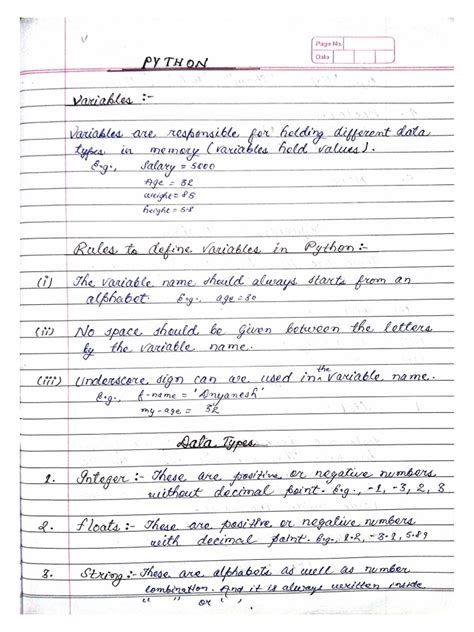 Page No.
Date
PYTHON
Variables :-
Variables are responsible for holding different data
types in memory (variables hold values).
E.g., Salary = 5000
Age = 32
weight = 85
height = 5.8
Rules to define variables in Python :-
(i) The variable name should always starts from an
alphabet. E.g., age = 30
(ii) No space should be given between the letters
by the variable name.
(iii) Underscore sign can are used in the variable name.
E.g., f-name = 'Dnyanesh'
my-age = 32
Data Types
1. Integer :- These are positive or negative numbers
without decimal point. E.g., -1, -3, 2, 3
2. Floats :- These are positive or negative numbers
with decimal point. E.g., 1.2, -3.2, 5.89
3. String :- These are alphabets as well as number
combination. And it is always written inside
" " or ' '